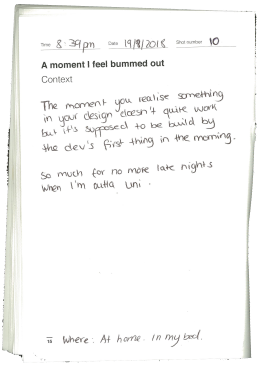 Time 8:39pm Date 19/8/2018 Shot number 10
A moment I feel bummed out
Context
The moment you realise something
in your design doesn't quite work
but it's supposed to be build by
the dev's first thing in the morning.
So much for no more late nights
when I'm outta uni.
Where: At home. In my bed.